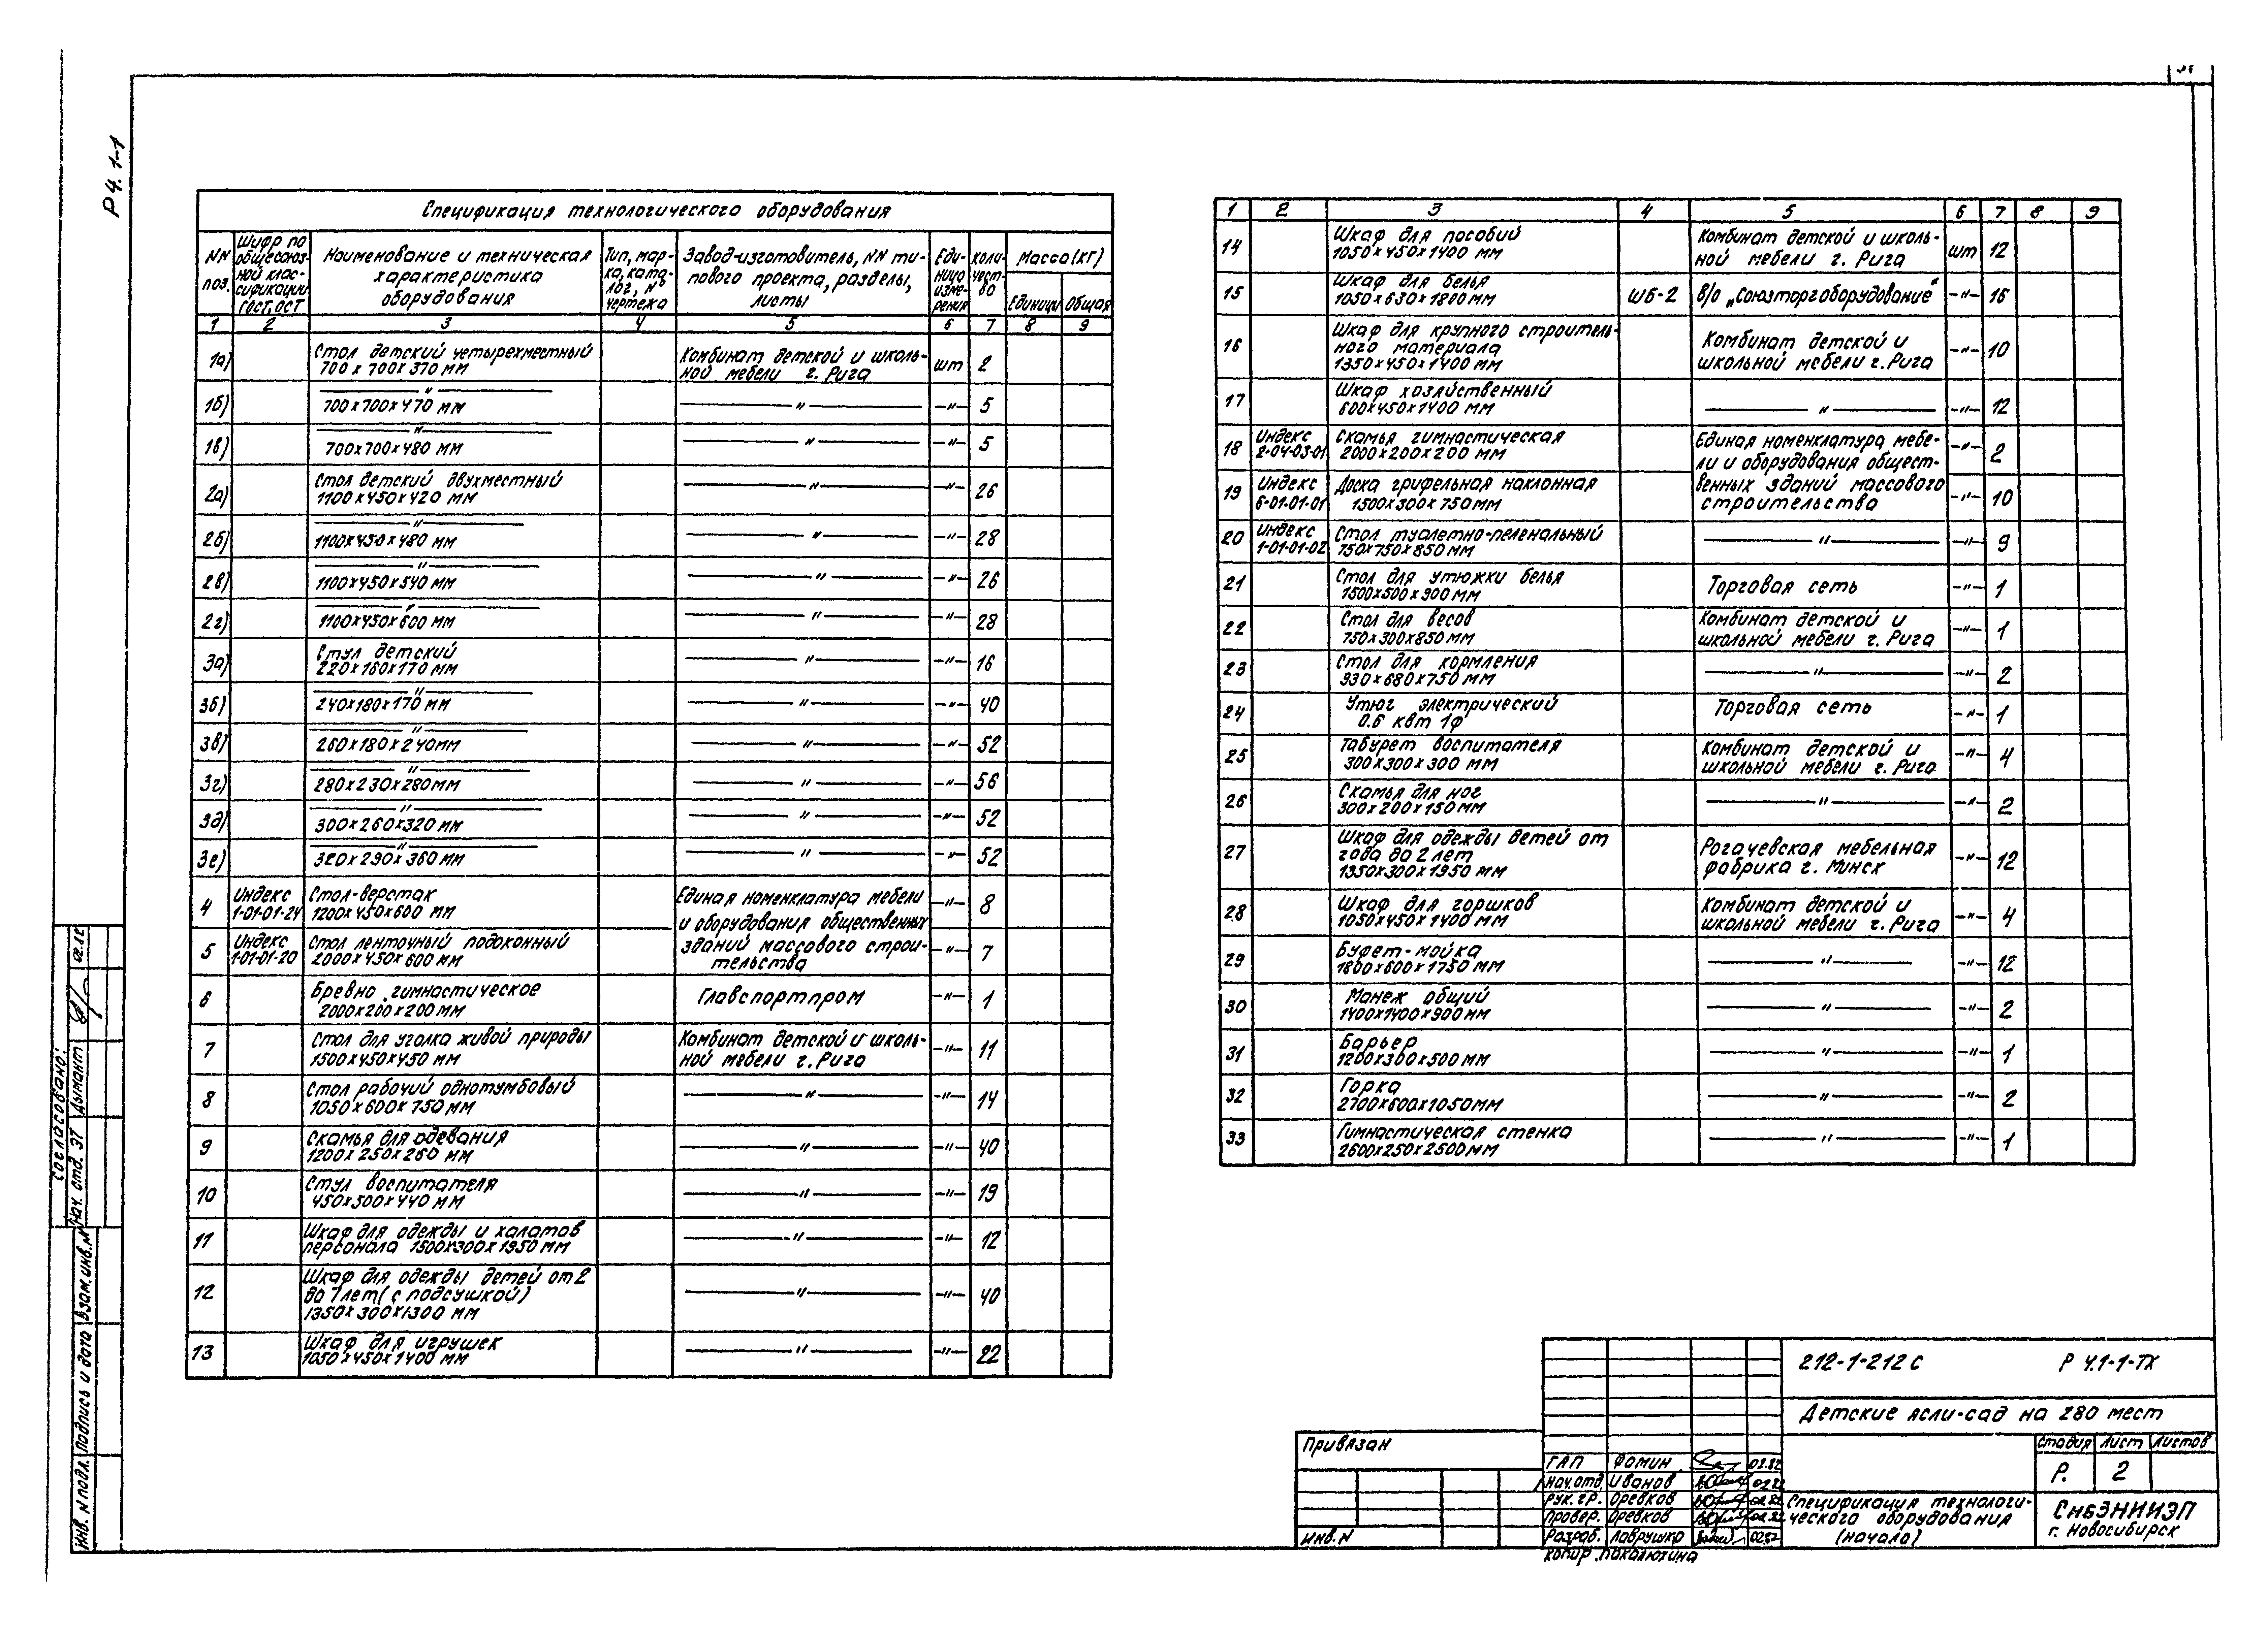 Р 4. 1-1
Спецификация технологического оборудования
NN поз.
Шифр по общесоюзной классификации ГОСТ, ОСТ
Наименование и техническая характеристика оборудования
Тип, марка, каталог, № чертежа
Завод-изготовитель, NN типового проекта, разделы, листы
Единица измерения
Количество
Масса (кг)
Единицы Общая
1 2 3 4 5 6 7 8 9
1а) Стол детский четырехместный Комбинат детской и школь- шт 2
700 х 700 х 370 мм ной мебели г. Рига
1б) —"— 700х700х470 мм —"— —"— 5
1в) —"— 700х700х480 мм —"— —"— 5
2а) Стол детский двухместный —"— —"— 26
1100х450х420 мм
2б) —"— 1100х450х480 мм —"— —"— 28
2в) —"— 1100х450х540 мм —"— —"— 26
2г) —"— 1100х450х600 мм —"— —"— 28
3а) Стул детский —"— —"— 16
220х160х170 мм
3б) —"— 240х180х170 мм —"— —"— 40
3в) —"— 260х180х240мм —"— —"— 52
3г) —"— 280х230х280мм —"— —"— 56
3д) —"— 300х260х320 мм —"— —"— 52
3е) —"— 320х290х360 мм —"— —"— 52
4 Индекс Стол-верстак Единая номенклатура мебели —"— 8
1-01-01-24 1200х450х600 мм и оборудования общественных
5 Индекс Стол ленточный подоконный зданий массового строи- —"— 7
1-01-01-20 2000х450х600 мм тельства
6 Бревно гимнастическое Главспортпром —"— 1
2000х200х200 мм
7 Стол для уголка живой природы Комбинат детской и школь- —"— 11
1500х450х450 мм ной мебели г. Рига
8 Стол рабочий однотумбовый —"— —"— 14
1050х600х750 мм
9 Скамья для одевания —"— —"— 40
1200х250х260 мм
10 Стул воспитателя —"— —"— 19
450х500х440 мм
11 Шкаф для одежды и халатов —"— —"— 12
персонала 1500х300х1950 мм
12 Шкаф для одежды детей от 2 —"— —"— 40
до 7 лет (с подсушкой)
1350х300х1300 мм
13 Шкаф для игрушек —"— —"— 22
1050х450х1400 мм
1 2 3 4 5 6 7 8 9
14 Шкаф для пособий Комбинат детской и школь- шт 12
1050х450х1400 мм ной мебели г. Рига
15 Шкаф для белья ШБ-2 В/О „Союзторгоборудование" —"— 16
1050х630х1800 мм
16 Шкаф для крупного строитель- Комбинат детской и —"— 10
ного материала школьной мебели г. Рига
1350х450х1400 мм
17 Шкаф хозяйственный —"— —"— 12
600х450х1400 мм
18 Индекс Скамья гимнастическая Единая номенклатура мебе- —"— 2
2-04-03-01 2000х200х200 мм ли и оборудования общест-
19 Индекс Доска грифельная наклонная венных зданий массового —"— 10
6-01-01-01 1500х300х750 мм строительства
20 Индекс Стол туалетно-пеленальный —"— —"— 9
1-01-01-02 750х750х850 мм
21 Стол для утюжки белья Торговая сеть —"— 1
1500х500х900 мм
22 Стол для весов Комбинат детской и —"— 1
750х300х850 мм школьной мебели г. Рига
23 Стол для кормления —"— —"— 2
930х680х750 мм
24 Утюг электрический Торговая сеть —"— 1
0.6 квт 1ф
25 Табурет воспитателя Комбинат детской и —"— 4
300х300х300 мм школьной мебели г. Рига
26 Скамья для ног —"— —"— 2
300х200х150мм
27 Шкаф для одежды детей от Рогачевская мебельная —"— 12
года до 2 лет фабрика г. Минск
1350х300х1950 мм
28 Шкаф для горшков Комбинат детской и —"— 4
1050х450х1400 мм школьной мебели г. Рига
29 Буфет-мойка —"— —"— 12
1800х600х1750 мм
30 Манеж общий —"— —"— 2
1400х1400х900мм
31 Барьер —"— —"— 1
1200х300х500мм
32 Горка —"— —"— 2
2700х600х1050мм
33 Гимнастическая стенка —"— —"— 1
2600х250х2500мм
Согласовано:
Нач. отд. ЭТ Дымант 02.82
Инв. N подл. Подпись и дата Взам. инв. N
Привязан
Инв. N
212-1-212 С Р 4.1-1-ТХ
Детские ясли-сад на 280 мест
Стадия Лист Листов
Р. 2
ГАП Фомин
Нач. отд. Иванов
Рук. гр. Оревков
Провер. Оревков
Разраб. Лаврушко 02.82
Спецификация технологи-
ческого оборудования
(начало)
СибЗНИИЭП
г. Новосибирск
Копир. Пакалюхина